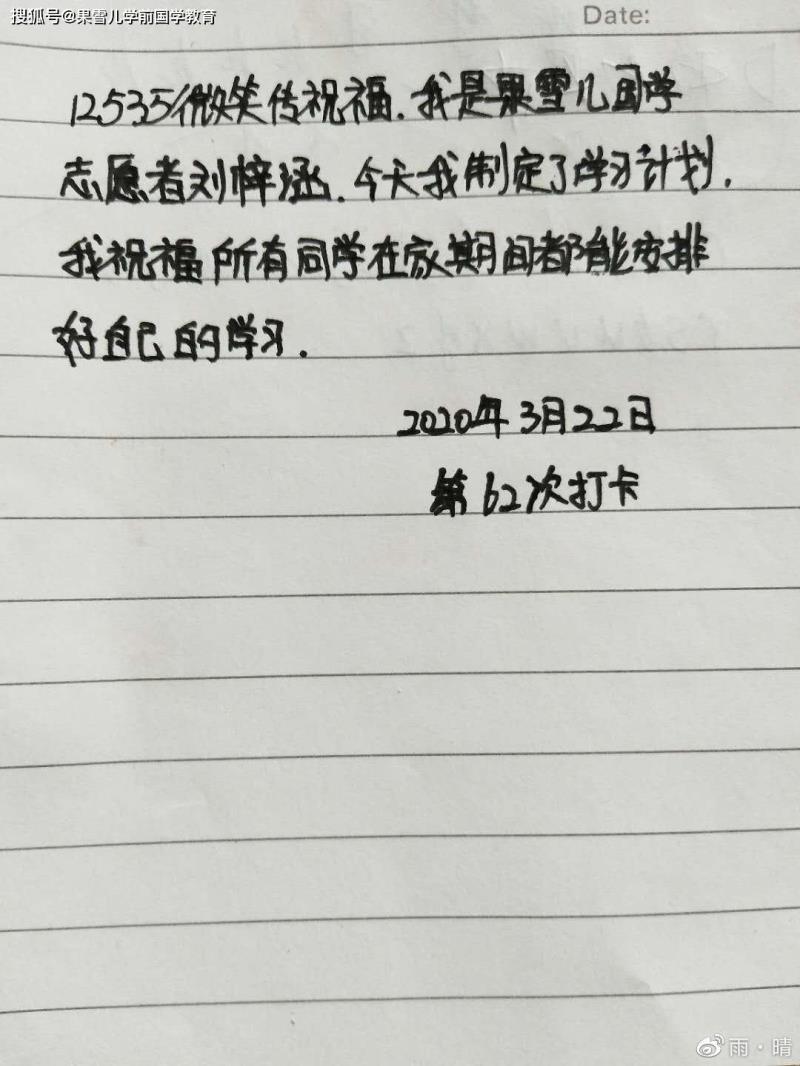 搜狐号@果雪儿学前国学教育
Date:
12535微笑传祝福.我是果雪儿国学
志愿者刘梓涵.今天我制定了学习计划.
我祝福所有同学在家期间都能安排
好自己的学习.
2020年3月22日
第62次打卡
雨·晴